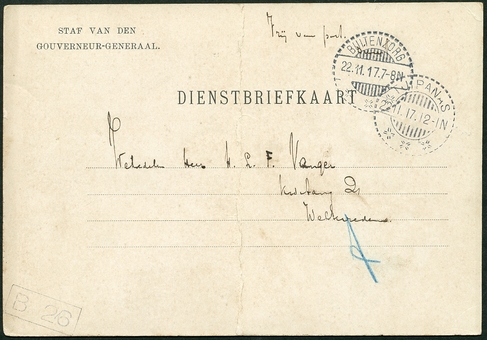 STAF VAN DEN
GOUVERNEUR-GENERAAL.
Vrij van port.
BUITENZORG
22.11.17.7-8N
TJIPANAS
11.17.12-1N
DIENSTBRIEFKAART
Heer H. L. F. Vanger
21
Weltevreden
B 26